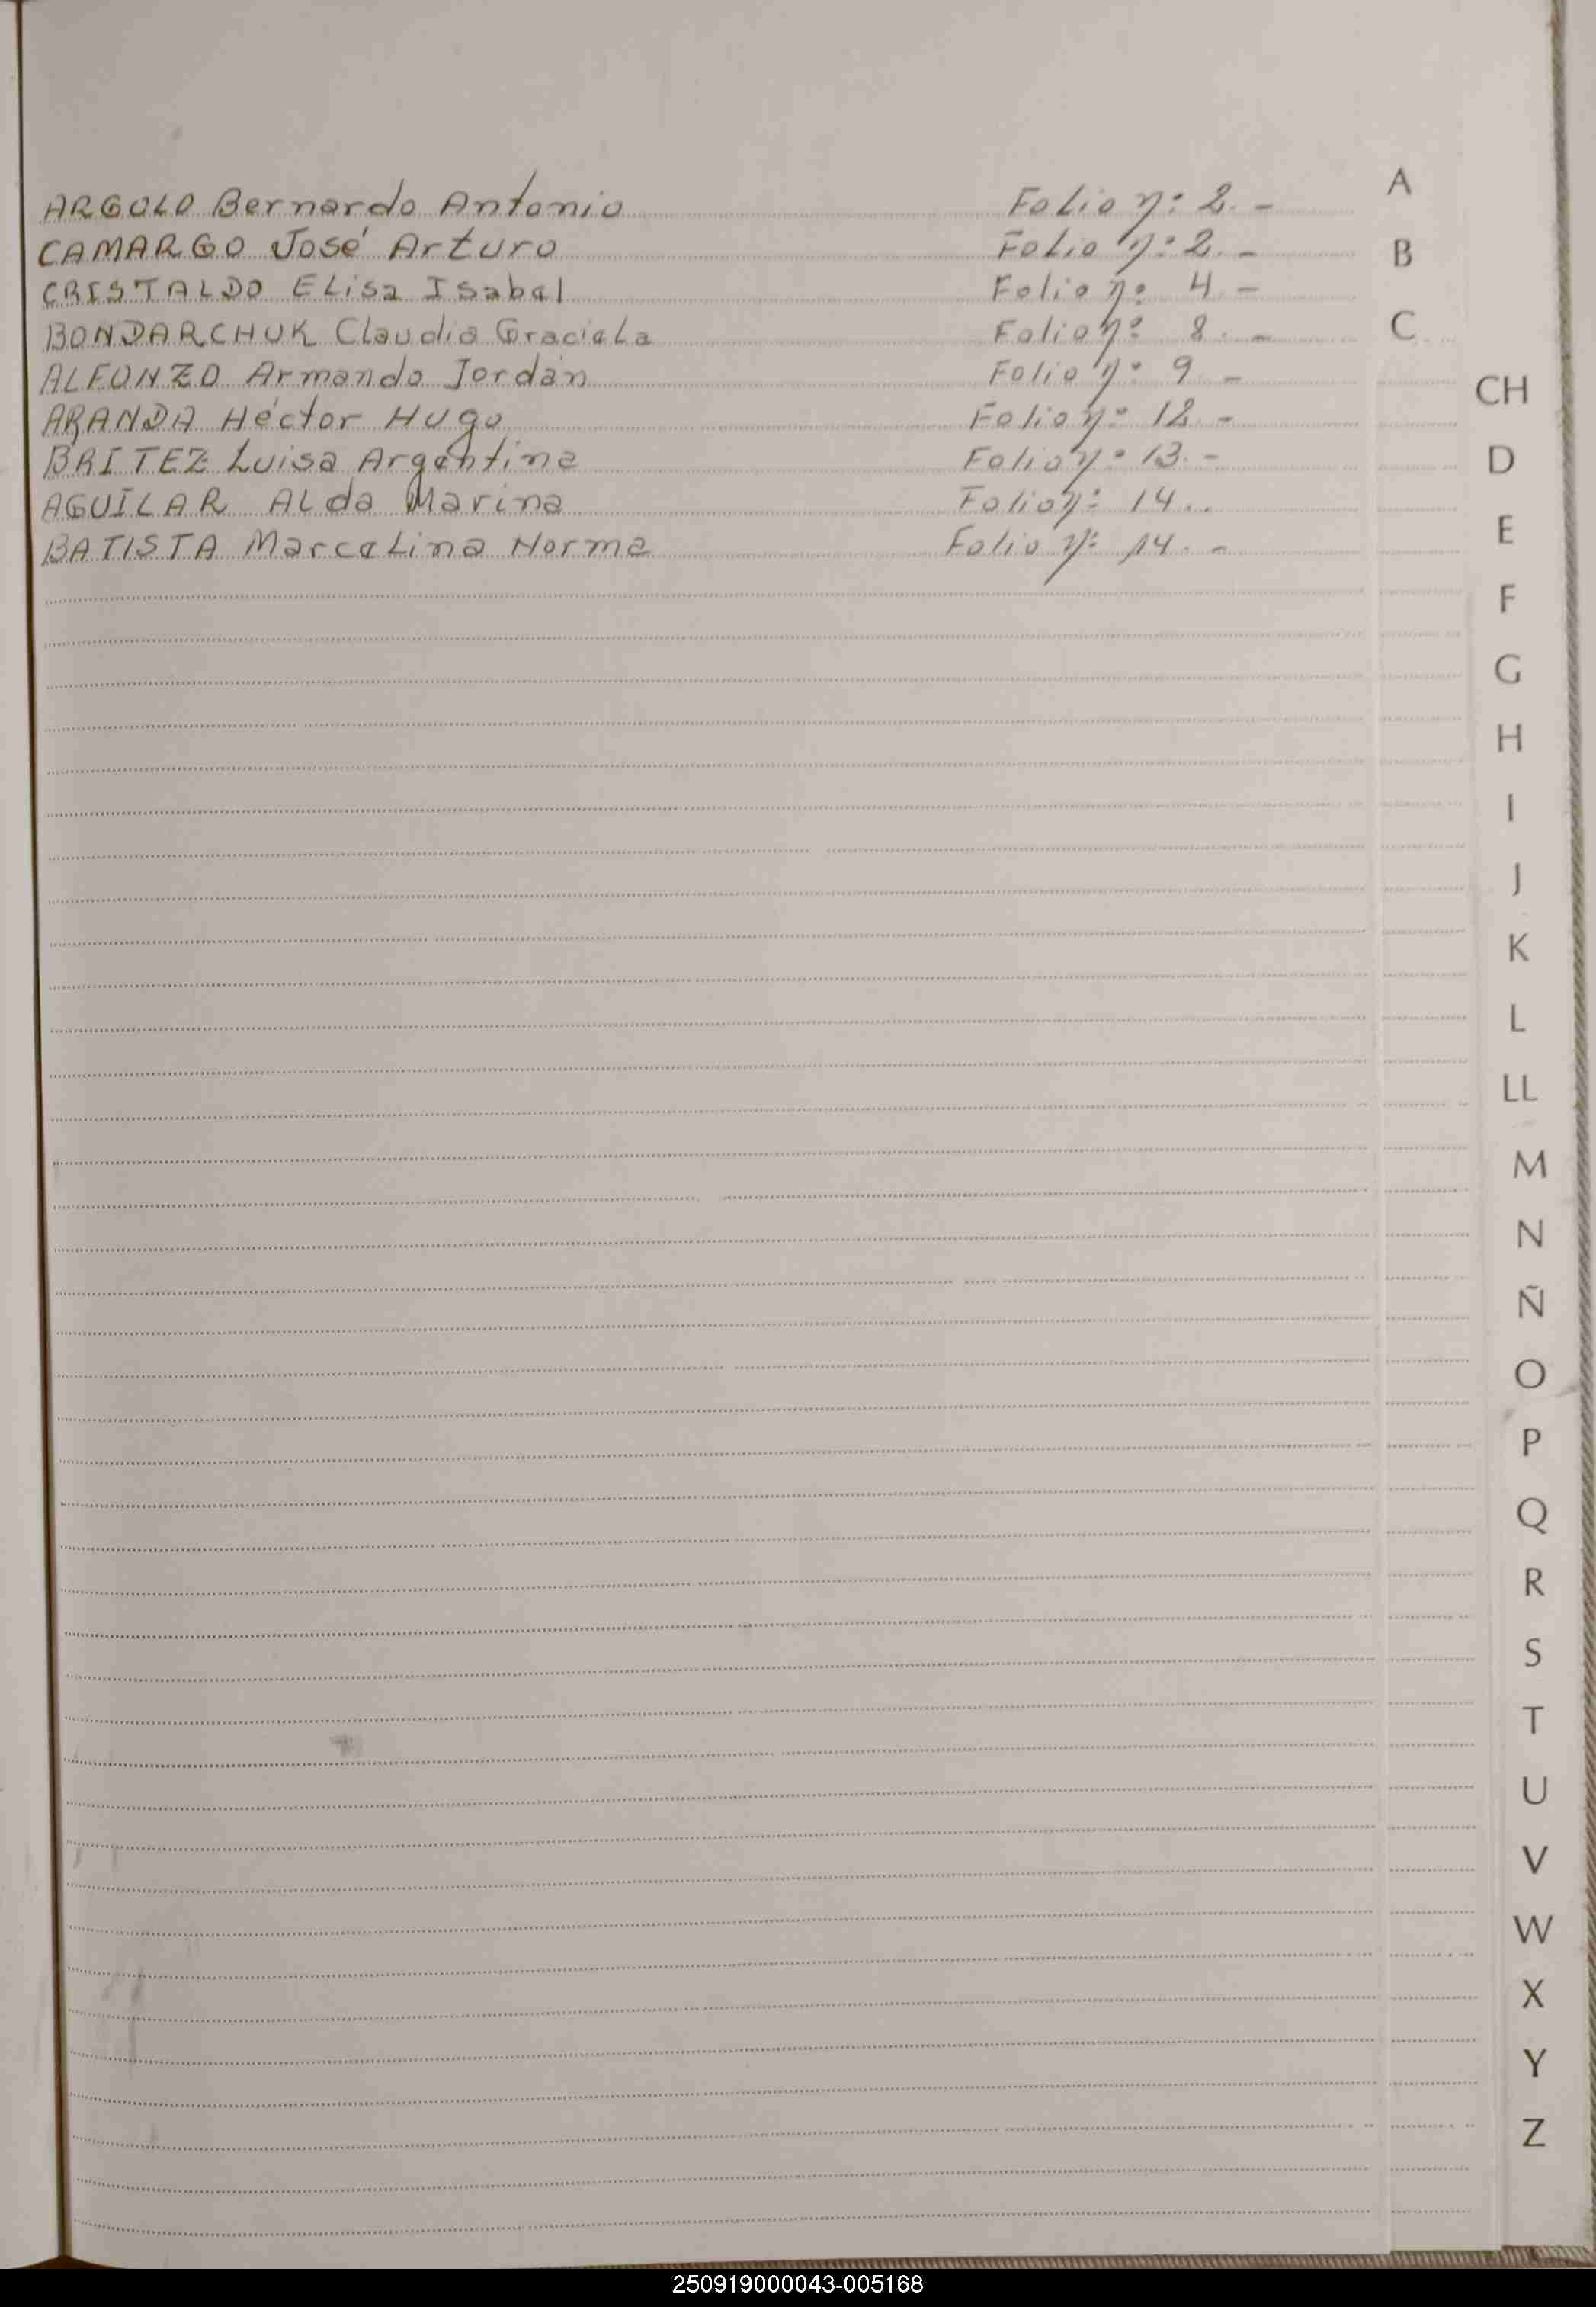 ARGOLO Bernardo Antonio Folio n: 2. -
CAMARGO José Arturo Folio n: 2. -
CRISTALDO Elisa Isabel Folio n: 4 -
BONDARCHUK Claudia Graciela Folio n: 8. -
ALFONZO Armando Jordán Folio n: 9 -
ARANDA Héctor Hugo Folio n: 12 -
BRITEZ Luisa Argentina Folio n: 13. -
AGUILAR Alda Marina Folio n: 14..
BATISTA Marcelina Norma Folio n: 14. -
A
B
C
CH
D
E
F
G
H
I
J
K
L
LL
M
N
Ñ
O
P
Q
R
S
T
U
V
W
X
Y
Z
250919000043-005168